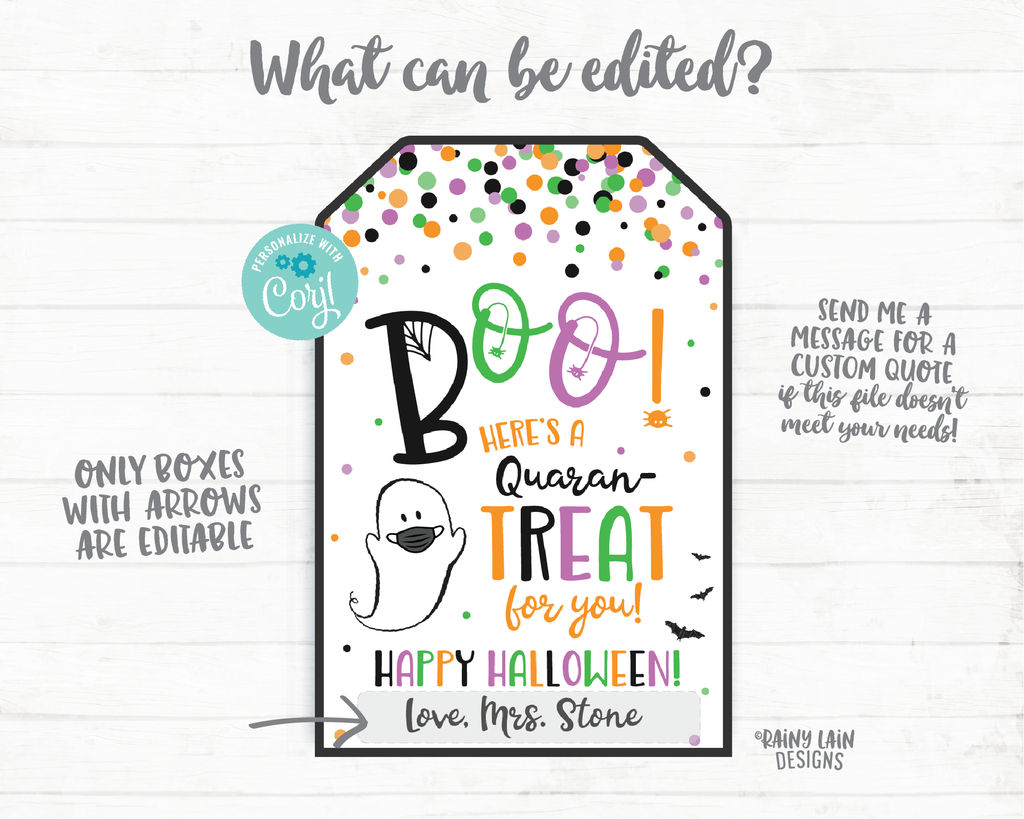 What can be edited?
PERSONALIZE WITH
Corjl
BOO!
HERE'S A
Quaran-
TREAT
for you!
HAPPY HALLOWEEN!
Love, Mrs. Stone
ONLY BOXES
WITH ARROWS
ARE EDITABLE
SEND ME A
MESSAGE FOR A
CUSTOM QUOTE
if this file doesn't
meet your needs!
©RAINY LAIN
DESIGNS